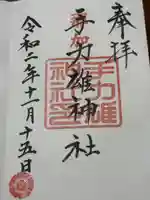 奉拝
手力雄神社
手力雄
神社印
令和二年十一月十五日